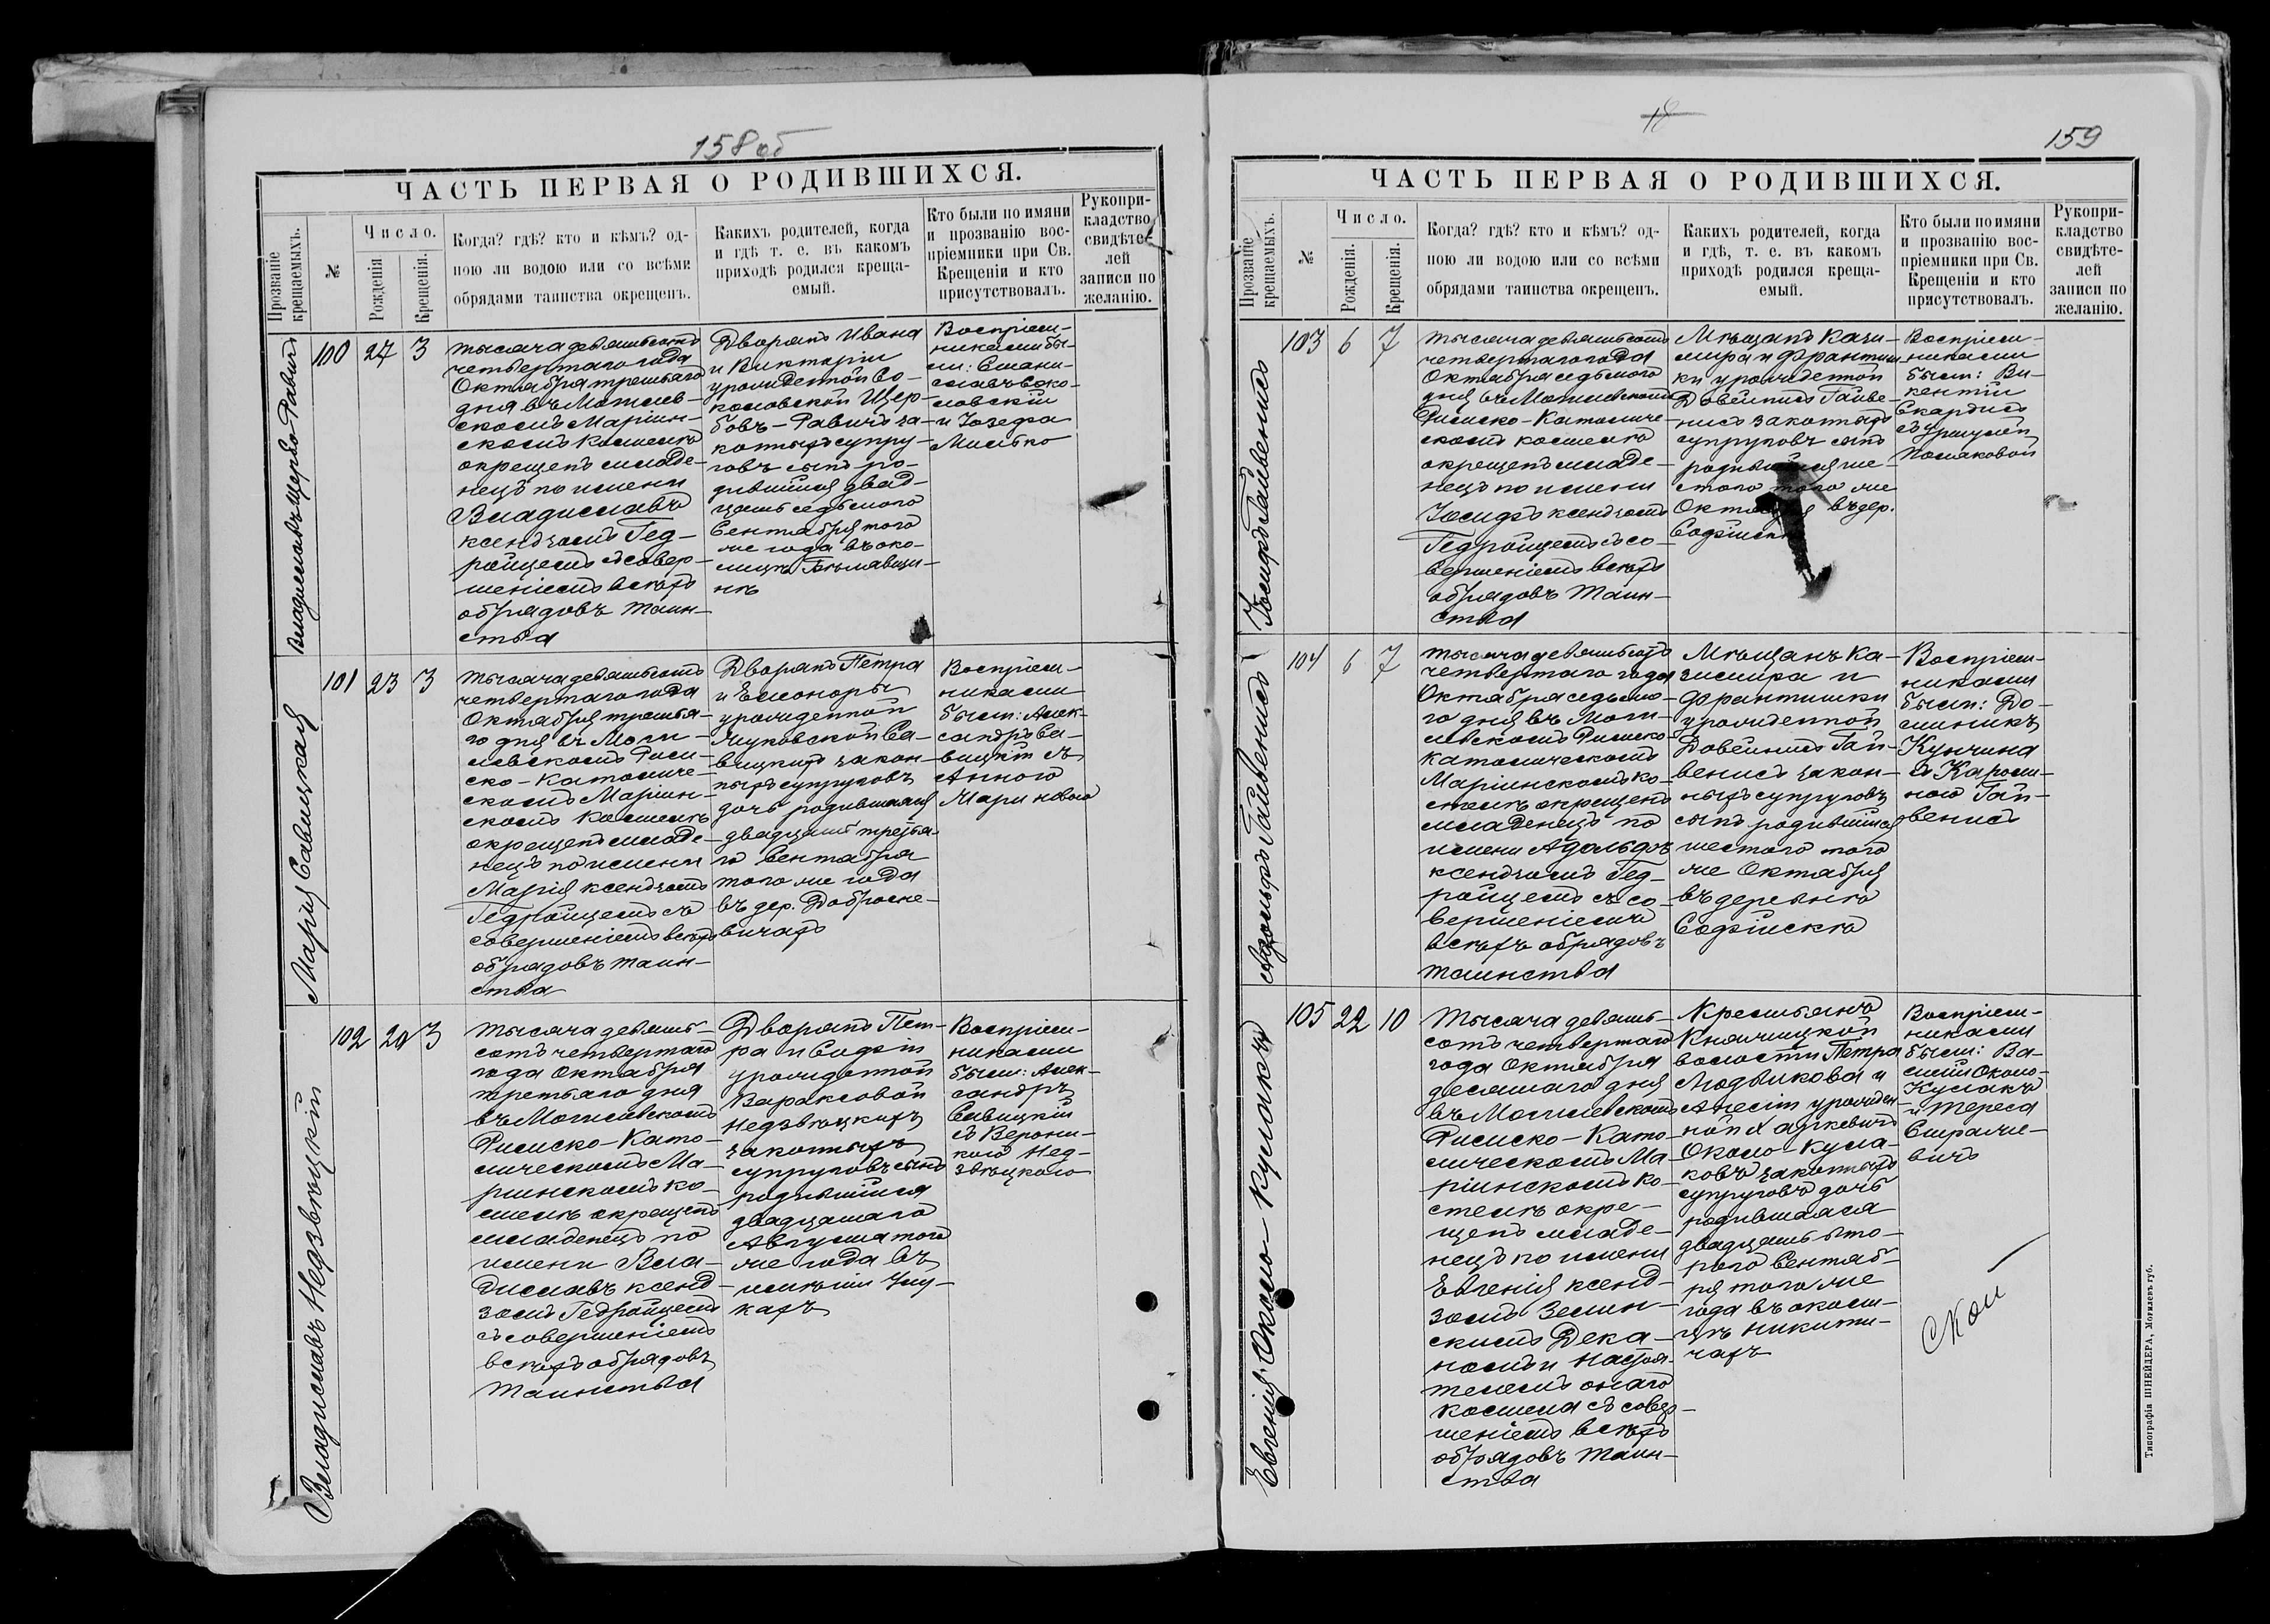 158 об
ЧАСТЬ ПЕРВАЯ О РОДИВШИХСЯ.
Прозваніе крещаемыхъ.
№
Число.
Рожденія
Крещенія.
Когда? гдѣ? кто и кѣмъ? од-
ною ли водою или со всѣми
обрядами таинства окрещенъ.
Какихъ родителей, когда
и гдѣ т. е. въ какомъ
приходѣ родился креща-
емый.
Кто были по имяни
и прозванію вос-
пріемники при Св.
Крещеніи и кто
присутствовалъ.
Рукопри-
кладство
свидѣте-
лей
записи по
желанію.
Владиславъ Щербо-Равичъ
100 27 3
Тысяча девятьсотъ
четвертаго года
Октября третьяго
дня въ Могилев-
скомъ Маріин-
скомъ костелѣ
окрещенъ младе-
нецъ по имени
Владиславъ
ксендзомъ Гед-
ройцемъ съ совер-
шеніемъ всѣхъ
обрядовъ Таин-
ства
Дворянъ Ивана
и Викторіи
урожденной Со-
коловской Щер-
бовъ-Равичъ за-
конныхъ супру-
говъ сынъ ро-
дившійся двад-
цать седьмого
Сентября того
же года въ око-
лицѣ
нѣ
Воспріем-
никами бы-
ли: Стани-
славъ Соко-
ловскій
и Іозефа
Милько
Марія Савицкая
101 23 3
Тысяча девятьсотъ
четвертаго года
Октября третья-
го дня въ Моги-
левскомъ Рим-
ско-Католиче-
скомъ Маріин-
скомъ костелѣ
окрещенъ младе-
нецъ по имени
Марія ксендзомъ
Гедройцемъ съ
совершеніемъ всѣхъ
обрядовъ таин-
ства
Дворянъ Петра
и Елеоноры
урожденной
Жуковской Са-
вицкихъ закон-
ныхъ супруговъ
дочь родившаяся
двадцать третья-
го Сентября
того же года
въ дер. Добросне-
вичахъ
Воспріем-
никами
были: Алек-
сандръ Са-
вицкій съ
Анною
Мариновою
Владиславъ Недзвѣцкій
102 20 3
Тысяча девять-
сотъ четвертаго
года Октября
третьяго дня
въ Могилевскомъ
Римско-Като-
лическомъ Ма-
ріинскомъ ко-
стелѣ окрещенъ
младенецъ по
имени Вла-
диславъ ксенд-
зомъ Гедройцемъ
съ совершеніемъ
всѣхъ обрядовъ
Таинства
Дворянъ Пет-
ра и Софіи
урожденной
Вараксовой
Недзвѣцкихъ
законныхъ
супруговъ сынъ
родившійся
двадцатаго
Августа того
же года въ
имѣніи
кахъ
Воспріем-
никами
были: Алек-
сандръ
Савицкій
съ Верони-
кою Нед-
звѣцкою
159
ЧАСТЬ ПЕРВАЯ О РОДИВШИХСЯ.
Прозваніе крещаемыхъ.
№
Число.
Рожденія.
Крещенія.
Когда? гдѣ? кто и кѣмъ? од-
ною ли водою или со всѣми
обрядами таинства окрещенъ.
Какихъ родителей, когда
и гдѣ, т. е. въ какомъ
приходѣ родился креща-
емый.
Кто были по имяни
и прозванію вос-
пріемники при Св.
Крещеніи и кто
присутствовалъ.
Рукопри-
кладство
свидѣте-
лей
записи по
желанію.
Іосифъ Гайвенисъ
103 6 7
Тысяча девятьсотъ
четвертаго года
Октября седьмого
дня въ Могилевскомъ
Римско-Католиче-
скомъ костелѣ
окрещенъ младе-
нецъ по имени
Іосифъ ксендзомъ
Гедройцемъ съ со-
вершеніемъ всѣхъ
обрядовъ Таин-
ства
Мѣщанъ Кази-
мира и Францишк-
ки урожденной
Довейнисъ Гайве-
нисъ законныхъ
супруговъ сынъ
родившійся ше-
стого того же
Октября въ дер.
Софійскѣ
Воспріем-
никами
были: Ви-
кентій
Скардисъ
съ Уршулей
Поляковой
Адольфъ Гайвенисъ
104 6 7
Тысяча девятьсотъ
четвертаго года
Октября седьмо-
го дня въ Моги-
левскомъ Римско-
Католическомъ
Маріинскомъ ко-
стелѣ окрещенъ
младенецъ по
имени Адольфъ
ксендзомъ Гед-
ройцемъ съ со-
вершеніемъ
всѣхъ обрядовъ
таинства
Мѣщанъ Ка-
зимира и
Францишки
урожденной
Довейнисъ Гай-
венисъ закон-
ныхъ супруговъ
сынъ родившійся
шестого того
же Октября
въ деревнѣ
Софійскѣ
Воспріем-
никами
были: До-
миникъ
Кунчина
съ Кароли-
ною Гай-
венисъ
Евгенія Около-Кулакъ
105 22 10
Тысяча девять-
сотъ четвертаго
года Октября
десятаго дня
въ Могилевскомъ
Римско-Като-
лическомъ Ма-
ріинскомъ ко-
стелѣ окре-
щенъ младе-
нецъ по имени
Евгенія ксенд-
зомъ Зелин-
скимъ Дека-
номъ и Настоя-
телемъ онаго
костела съ совер-
шеніемъ всѣхъ
обрядовъ Таин-
ства
Крестьянъ
Княжицкой
волости Петра
Людвикова и
Анеліи урожден-
ной Хацкевичъ
Около-Кула-
ковъ законныхъ
супруговъ дочь
родившаяся
двадцать вто-
рого Сентяб-
ря того же
года въ околи-
цѣ Никити-
чахъ
Воспріем-
никами
были: Ва-
силій Около-
Кулакъ
и Тереса
вичъ
Типографія ШНЕЙДЕРА, Могилевъ губ.